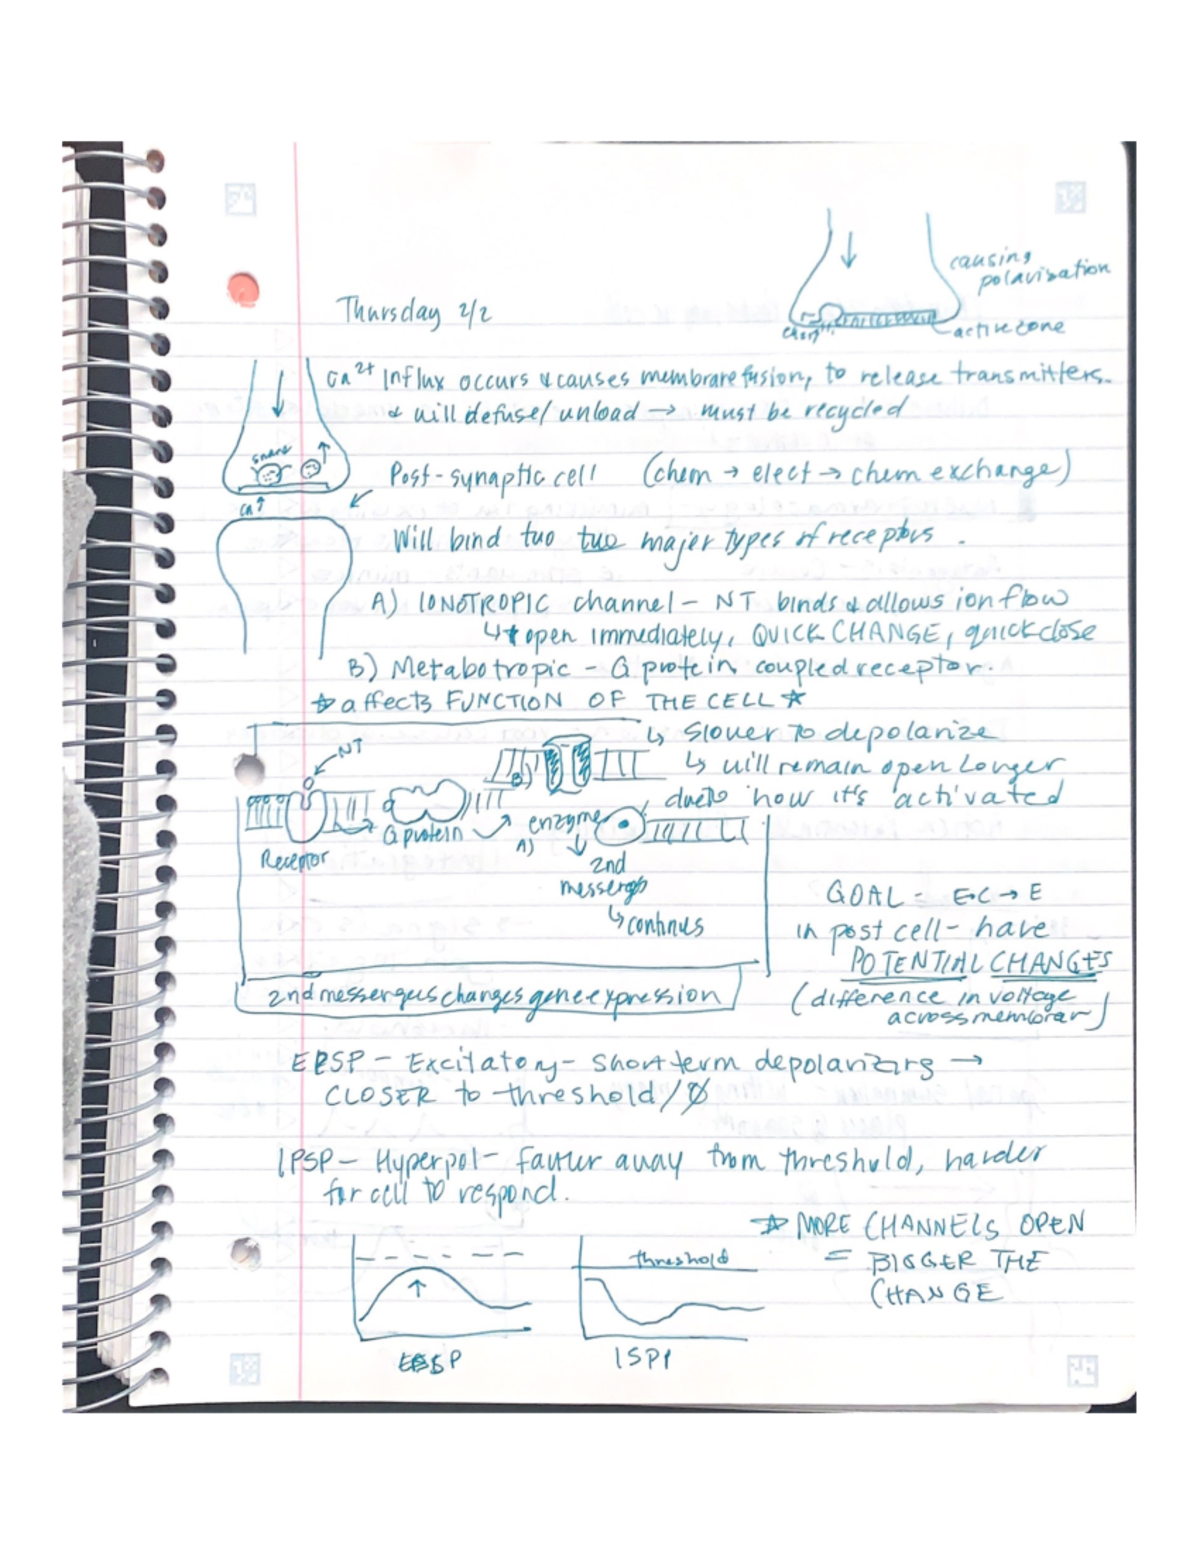 causing
polarization
Thursday 2/2
active zone
Ca2+ Influx occurs & causes membrane fusion, to release transmitters.
& will defuse/unload → must be recycled
snare
Post-synaptic cell (chem → elect → chem exchange)
Ca↑
Will bind two two major types of receptors.
A) IONOTROPIC channel - NT binds & allows ion flow
↳ open immediately, QUICK CHANGE, quick close
B) Metabotropic - G protein coupled receptor.
☆ affects FUNCTION OF THE CELL ☆
↳ Slower to depolarize
NT
↳ will remain open longer
B)
due to how it's activated
G protein
enzyme
A)
Receptor
2nd
messengs
↳ continues
GOAL = E→C→E
in post cell - have
POTENTIAL CHANGES
2nd messengers changes gene expression
(difference in voltage
across membrar)
EPSP - Excitatory - Short term depolarizing →
CLOSER to threshold/∅
IPSP - Hyperpol - farther away from threshold, harder
for cell to respond.
☆ MORE CHANNELS OPEN
= BIGGER THE
CHANGE
threshold
ISPP